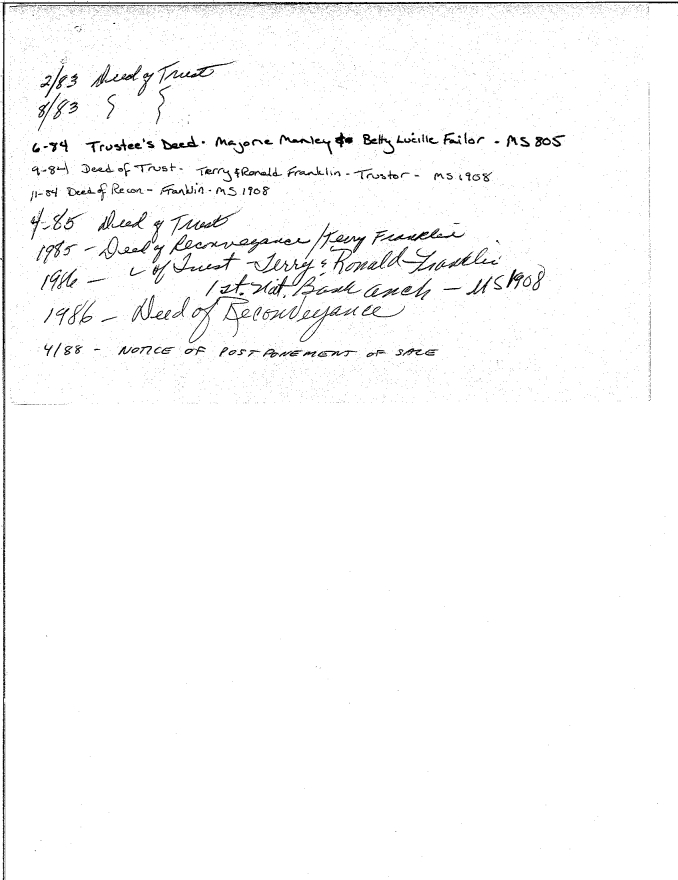 2/83 Deed of Trust
8/83 { {
6-84 Trustee's Deed. Majorie Manley to Betty Lucille Failor - MS 805
9-84 Deed of Trust - Terry & Ronald Franklin - Trustor - MS 1908
11-84 Deed of Recon - Franklin - MS 1908
4-85 Deed of Trust
1985 - Deed of Reconveyance / Terry Franklin
1986 - " of Trust - Terry & Ronald Franklin
1st. Nat. Bank Anch - MS 1908
1986 - Deed of Reconveyance
4/88 - NOTICE OF POSTPONEMENT OF SALE